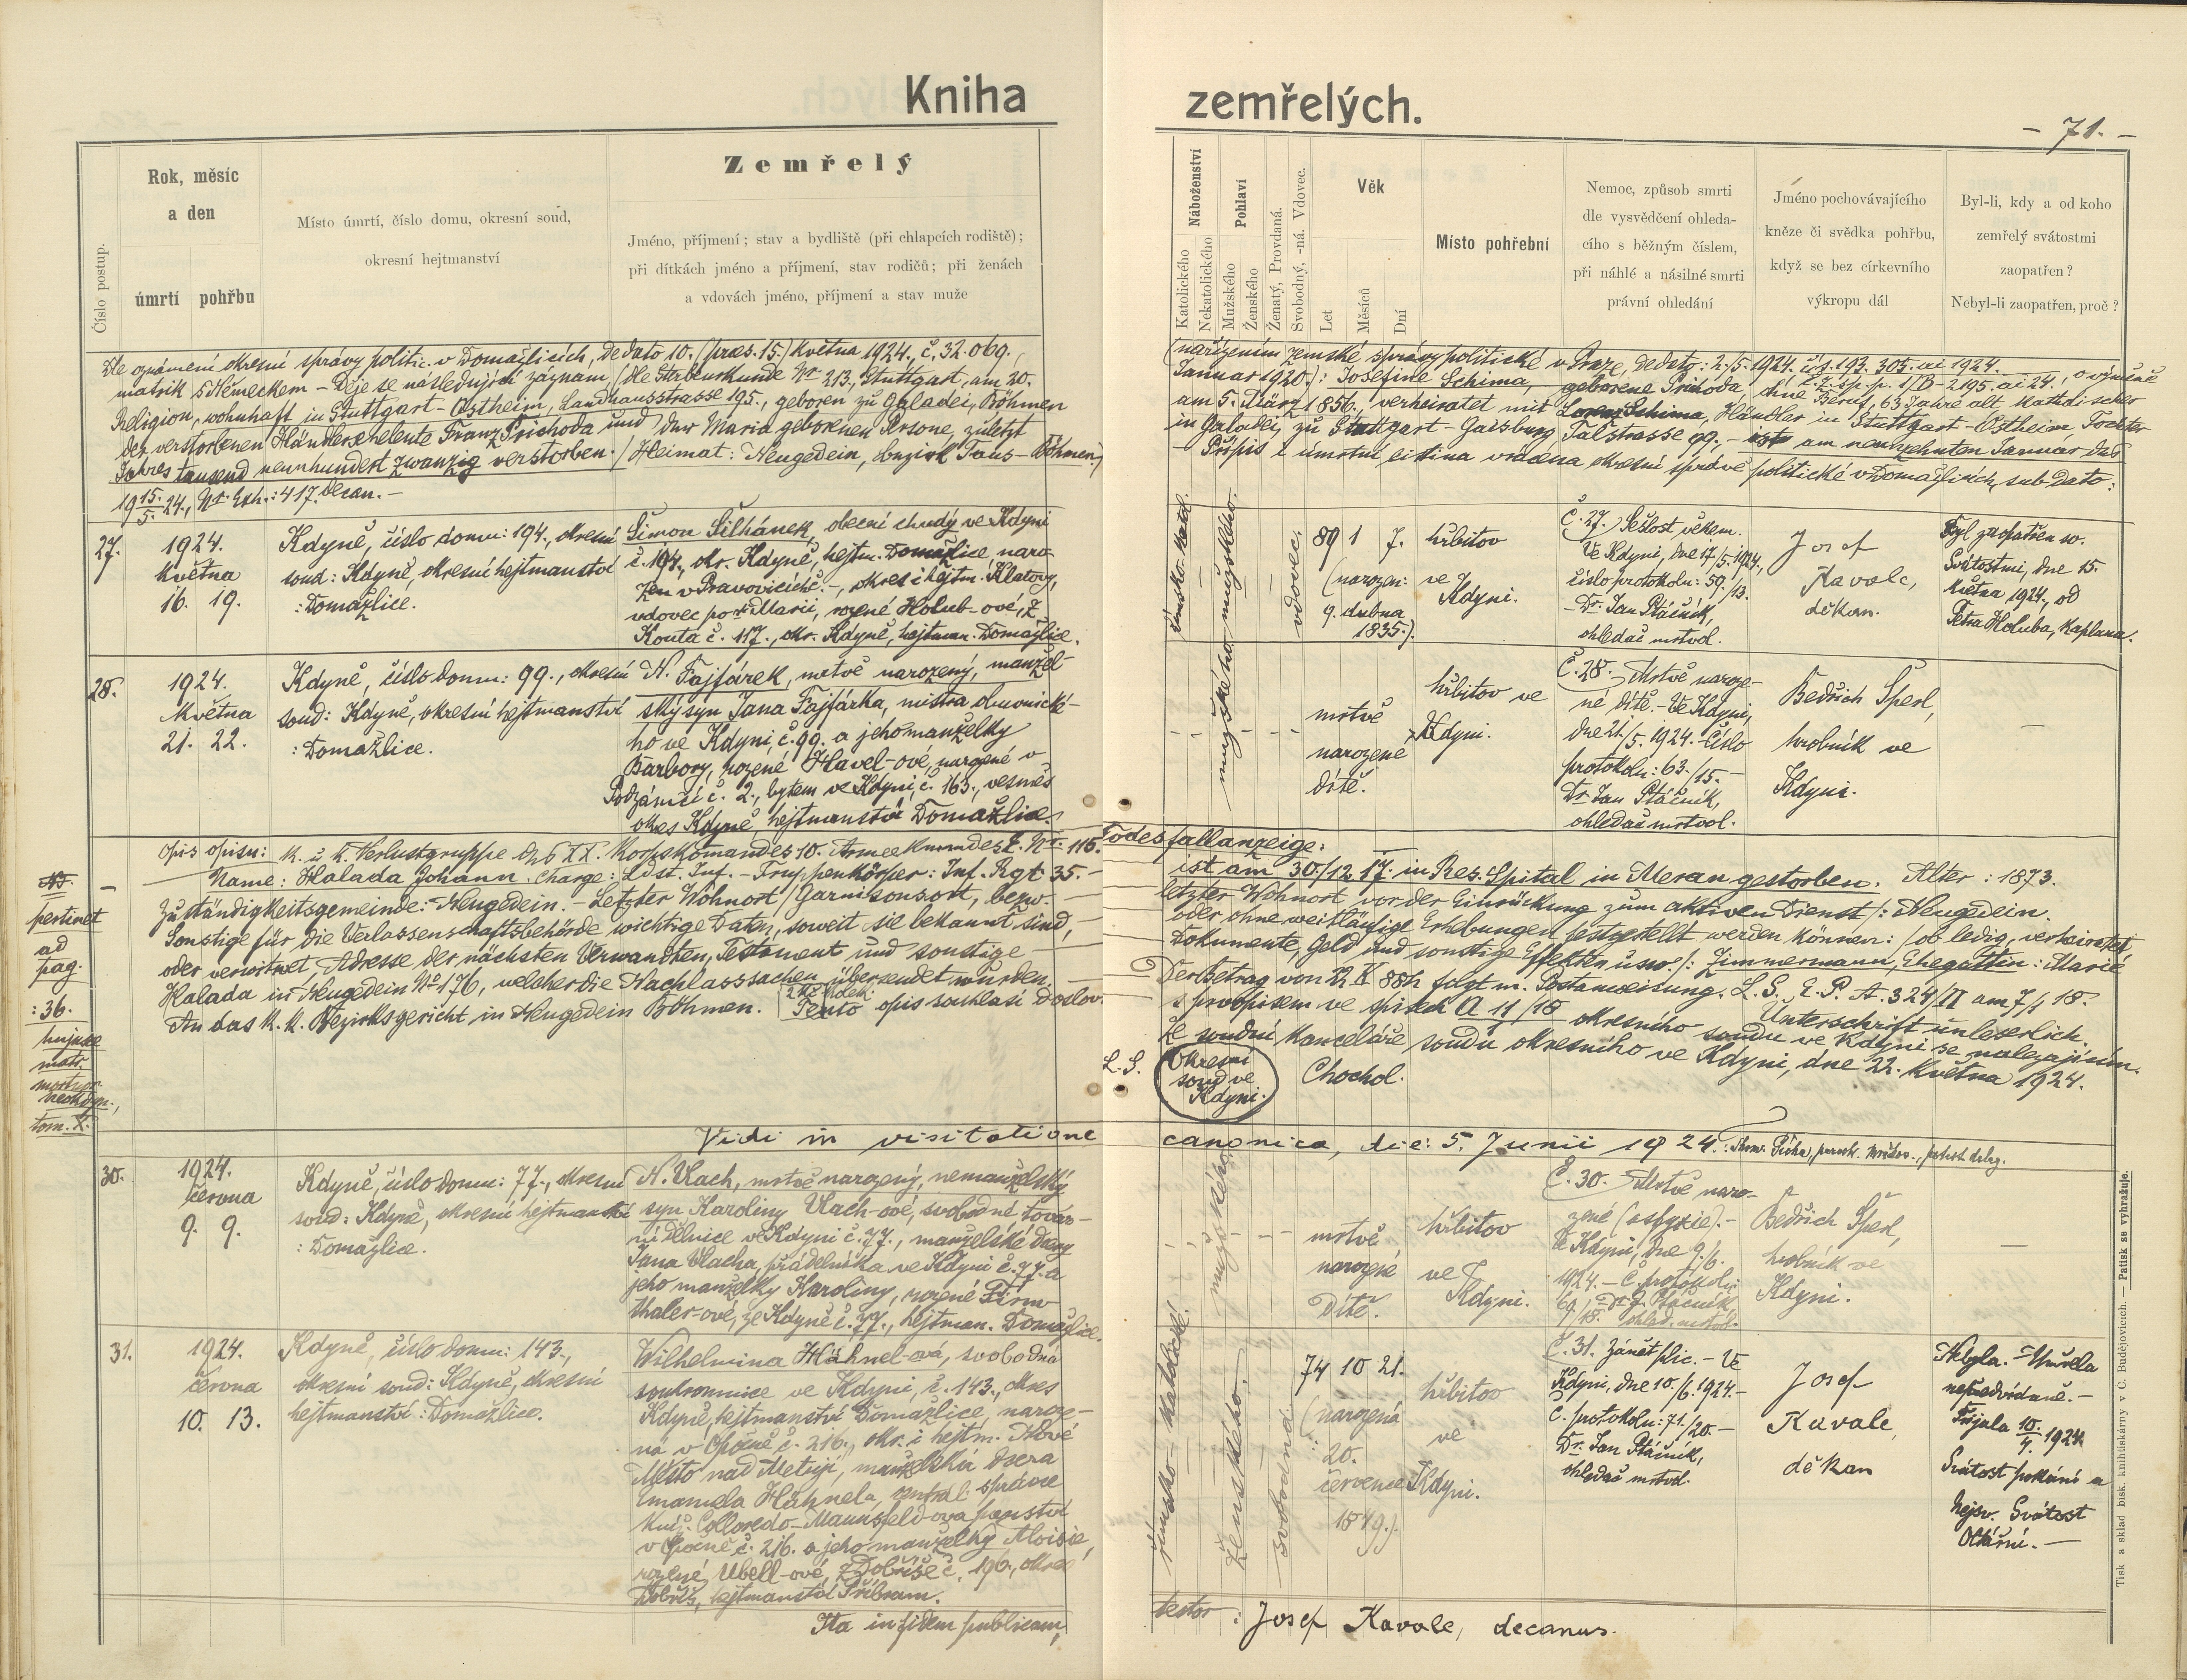 Kniha zemřelých.
- 71. -
Číslo postup.
Rok, měsíc
a den
úmrtí pohřbu
Místo úmrtí, číslo domu, okresní soud,
okresní hejtmanství
Zemřelý
Jméno, příjmení; stav a bydliště (při chlapcích rodiště);
při dítkách jméno a příjmení, stav rodičů; při ženách
a vdovách jméno, příjmení a stav muže
Náboženství
Katolického
Nekatolického
Pohlaví
Mužského
Ženského
Ženatý, Provdaná.
Svobodný, -ná. Vdovec.
Věk
Let
Měsíců
Dní
Místo pohřební
Nemoc, způsob smrti
dle vysvědčení ohleda-
cího s běžným číslem,
při náhlé a násilné smrti
právní ohledání
Jméno pochovávajícího
kněze či svědka pohřbu,
když se bez církevního
výkropu dál
Byl-li, kdy a od koho
zemřelý svátostmi
zaopatřen?
Nebyl-li zaopatřen, proč?
Dle oznámení okresní správy politic. v Domažlicích, de dato 10. (præs. 15.) května 1924., č. 32.069.,
(nařízením zemské správy politické v Praze, de dato: 2./5. 1924. čís. 193.305. ai 1924.
č. z. sp. p. 1/B-2195. ai 24., o výměně
matrik s Německem - Děje se následující záznam, (dle Sterbeurkunde Nr. 213, Stuttgart, am 20.
Januar 1920.): Josefine Schima, geborene Přihoda, ohne Beruf, 63 Jahre alt Katholischer
Religion, wohnhaft in Stuttgart-Ostheim, Landhausstrasse 195., geboren zu Galadei, Böhmen
am 5. März 1856. verheiratet mit Lorenz Schima, Händler in Stuttgart-Ostheim Tochter
der verstorbenen Händlerseheleute Franz Přichoda und der Maria geborenen Arsone, zuletzt
in Galadei, zu Stuttgart-Gaisburg Talstrasse 99., - ist am neunzehnten Januar des
Jahres tausend neunhundert zwanzig verstorben. (Heimat: Neugedein, bezirk Taus-Böhmen.)
- Přípis i úmrtní listina vrácena okresní správě politické v Domažlicích, sub dato:
19 15./5. 24., Nr. Exh.: 417. decan. -
27.
1924.
května
16. 19.
Kdyně, číslo domu: 194., okresní
soud: Kdyně, okresní hejtmanství
: Domažlice.
Šimon Šilhánek, obecní chudý ve Kdyni
č. 194., okr. Kdyně, hejtm. Domažlice, naro-
zen v Pravovicích č. -, okres i hejtm. Klatovy,
vdovec po + Marii, rozené Holub-ové, z
Kouta č. 117., okr. Kdyně, hejtman. Domažlice.
římsko-katol.
mužského.
vdovec.
89 1 7.
(narozen:
9. dubna
1835.).
hřbitov
ve
Kdyni.
Č. 27. Sešlost věkem.
Ve Kdyni, dne 17./5. 1924.,
číslo protokolu: 59./13.
- Dr. Jan Ptáčník,
ohledač mrtvol.
Josef
Kavale,
děkan.
Byl zaopatřen sv.
Svátostmi, dne 15.
května 1924., od
Petra Holuba, kaplana.
28.
1924.
května
21. 22.
Kdyně, číslo domu: 99., okresní
soud: Kdyně, okresní hejtmanství
: Domažlice.
N. Fajfárek, mrtvě narozený, manžel-
ský syn Jana Fajfárka, mistra
ho ve Kdyni, č. 99. a jeho manželky
Barbory, rozené Havel-ové, narozené v
Podzámčí č. 2., bytem ve Kdyni, č. 163., vesměs
okres Kdyně, hejtmanství Domažlice.
mužského
mrtvě
narozené
dítě.
hřbitov ve
Kdyni.
Č. 28. Mrtvě naroze-
né dítě. - Ve Kdyni,
dne 21./5. 1924. - Číslo
protokolu: 63./15. -
Dr. Jan Ptáčník,
ohledač mrtvol.
Bedřich Šperl,
hrobník ve
Kdyni.
N.
pertinet
ad
pag.
: 36.
hujuce
matr.
tom. X.
Opis opisu: K. u. K. Verlustgruppe des XX. Korpskomandes 10. Armeekmmdes E. Nr. 115. Todesfallanzeige:
Name: Halada Johann. Charge: Ldst. Inf. - Truppenkörper: Inf. Rgt. 35. -
ist am 30./12. 17. in Res. Spital in Meran gestorben. Alter: 1873.
Zuständigkeitsgemeinde: Neugedein. - Letzter Wohnort (Garnisonsort, bezw.
letzter Wohnort vor der Einrückung zum aktiven Dienst): Neugedein.
Sonstige für die Verlassenschaftsbehörde wichtige Daten, soweit sie bekannt sind,
oder ohne weitläufige Erhebungen festgestellt werden können: (ob ledig, verheiratet
oder verwitwet, Adresse der nächsten Verwandten, Testament und sonstige
Dokumente, Geld und sonstige Effekten usw.): Zimmermann, Ehegattin: Marie
Halada in Neugedein No 176, welcher die Nachlasssachen übersendet wurden.
Der Betrag von 12 K 88h folgt m. Postanweisung. L. S. E. P. A. 324/II am 7/1 18.
Unterschrift unleserlich.
An das K. K. Bezirksgericht in Neugedein Böhmen. Tento opis souhlasí doslov.
s prvopisem ve spisech A 11/18 okresního soudu ve Kdyni se nalezajícím.
Z soudní kanceláře soudu okresního ve Kdyni, dne 22. května 1924.
L. S.
Okresní
soud ve
Kdyni.
Chochol.
Vidi in visitatione canonica, die: 5. Junii 1924.
30.
1924.
června
9. 9.
Kdyně, číslo domu: 77., okresní
soud: Kdyně, okresní hejtmanství
: Domažlice.
N. Vlach, mrtvě narozený, nemanželský
syn Karoliny Vlach-ové, svobodné továr-
ní dělnice ve Kdyni č. 77., manželské dcery
Jana Vlacha, přádelníka ve Kdyni č. 77. a
jeho manželky Karoliny, rozené Firn-
thaler-ové, ze Kdyně č. 77., hejtman. Domažlice.
mužského
mrtvě
narozené
Dítě.
hřbitov
ve
Kdyni.
Č. 30. Mrtvě naro-
zené (asfyxie). -
Ve Kdyni, dne 9./6.
1924. - Č. protokolu:
69./18. Dr. J. Ptáčník,
ohled. mrtvol.
Bedřich Šperl,
hrobník ve
Kdyni.
31.
1924.
června
10. 13.
Kdyně, číslo domu: 143.,
okresní soud: Kdyně, okresní
hejtmanství: Domažlice.
Wilhelmina Hähnel-ová, svobodná
soukromnice ve Kdyni, č. 143., okres
Kdyně, hejtmanství Domažlice, naroze-
ná v Opočně č. 216., okr. i hejtm. Nové
Město nad Metují, manželská dcera
Emanuela Hähnela, central. správce
kníž. Colloredo-Mannsfeld-ova panství
v Opočně č. 216. a jeho manželky Aloisie,
rozené Ubell-ové, z Dobříše č. 196., okres
Dobříš, hejtmanství Příbram.
římsko-katolické.
Ženského.
svobodná.
74 10 21.
(narozená
20.
července
1849.).
hřbitov
ve
Kdyni.
Č. 31. Zánět plic. - Ve
Kdyni, dne 10./6. 1924. -
Č. protokolu: 71./20. -
Dr. Jan Ptáčník,
ohledač mrtvol.
Josef
Kavale,
děkan
Nebyla. - Umřela
nepředvídaně. -
Přijala 10./4. 1924
Svátost pokání a
Nejsv. Svátost
Oltářní. -
Ita in fidem publicam,
testor: Josef Kavale, decanus.
Tisk a sklad bisk. knihtiskárny v Č. Budějovicích. — Patisk se vyhražuje.